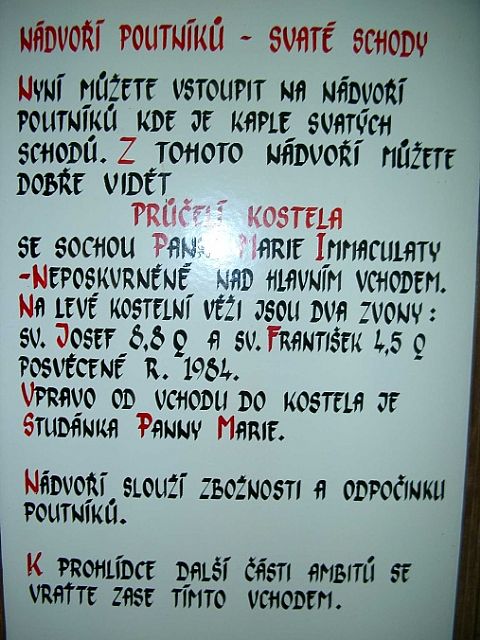 NÁDVOŘÍ POUTNÍKŮ - SVATÉ SCHODY
NYNÍ MŮŽETE VSTOUPIT NA NÁDVOŘÍ
POUTNÍKŮ KDE JE KAPLE SVATÝCH
SCHODŮ. Z TOHOTO NÁDVOŘÍ MŮŽETE
DOBŘE VIDĚT
PRŮČELÍ KOSTELA
SE SOCHOU PANNY MARIE IMMACULATY
-NEPOSKVRNĚNÉ NAD HLAVNÍM VCHODEM.
NA LEVÉ KOSTELNÍ VĚŽI JSOU DVA ZVONY:
SV. JOSEF 8,8 Q A SV. FRANTIŠEK 4,5 Q
POSVĚCENÉ R. 1984.
VPRAVO OD VCHODU DO KOSTELA JE
STUDÁNKA PANNY MARIE.
NÁDVOŘÍ SLOUŽÍ ZBOŽNOSTI A ODPOČINKU
POUTNÍKŮ.
K PROHLÍDCE DALŠÍ ČÁSTI AMBITŮ SE
VRAŤTE ZASE TÍMTO VCHODEM.